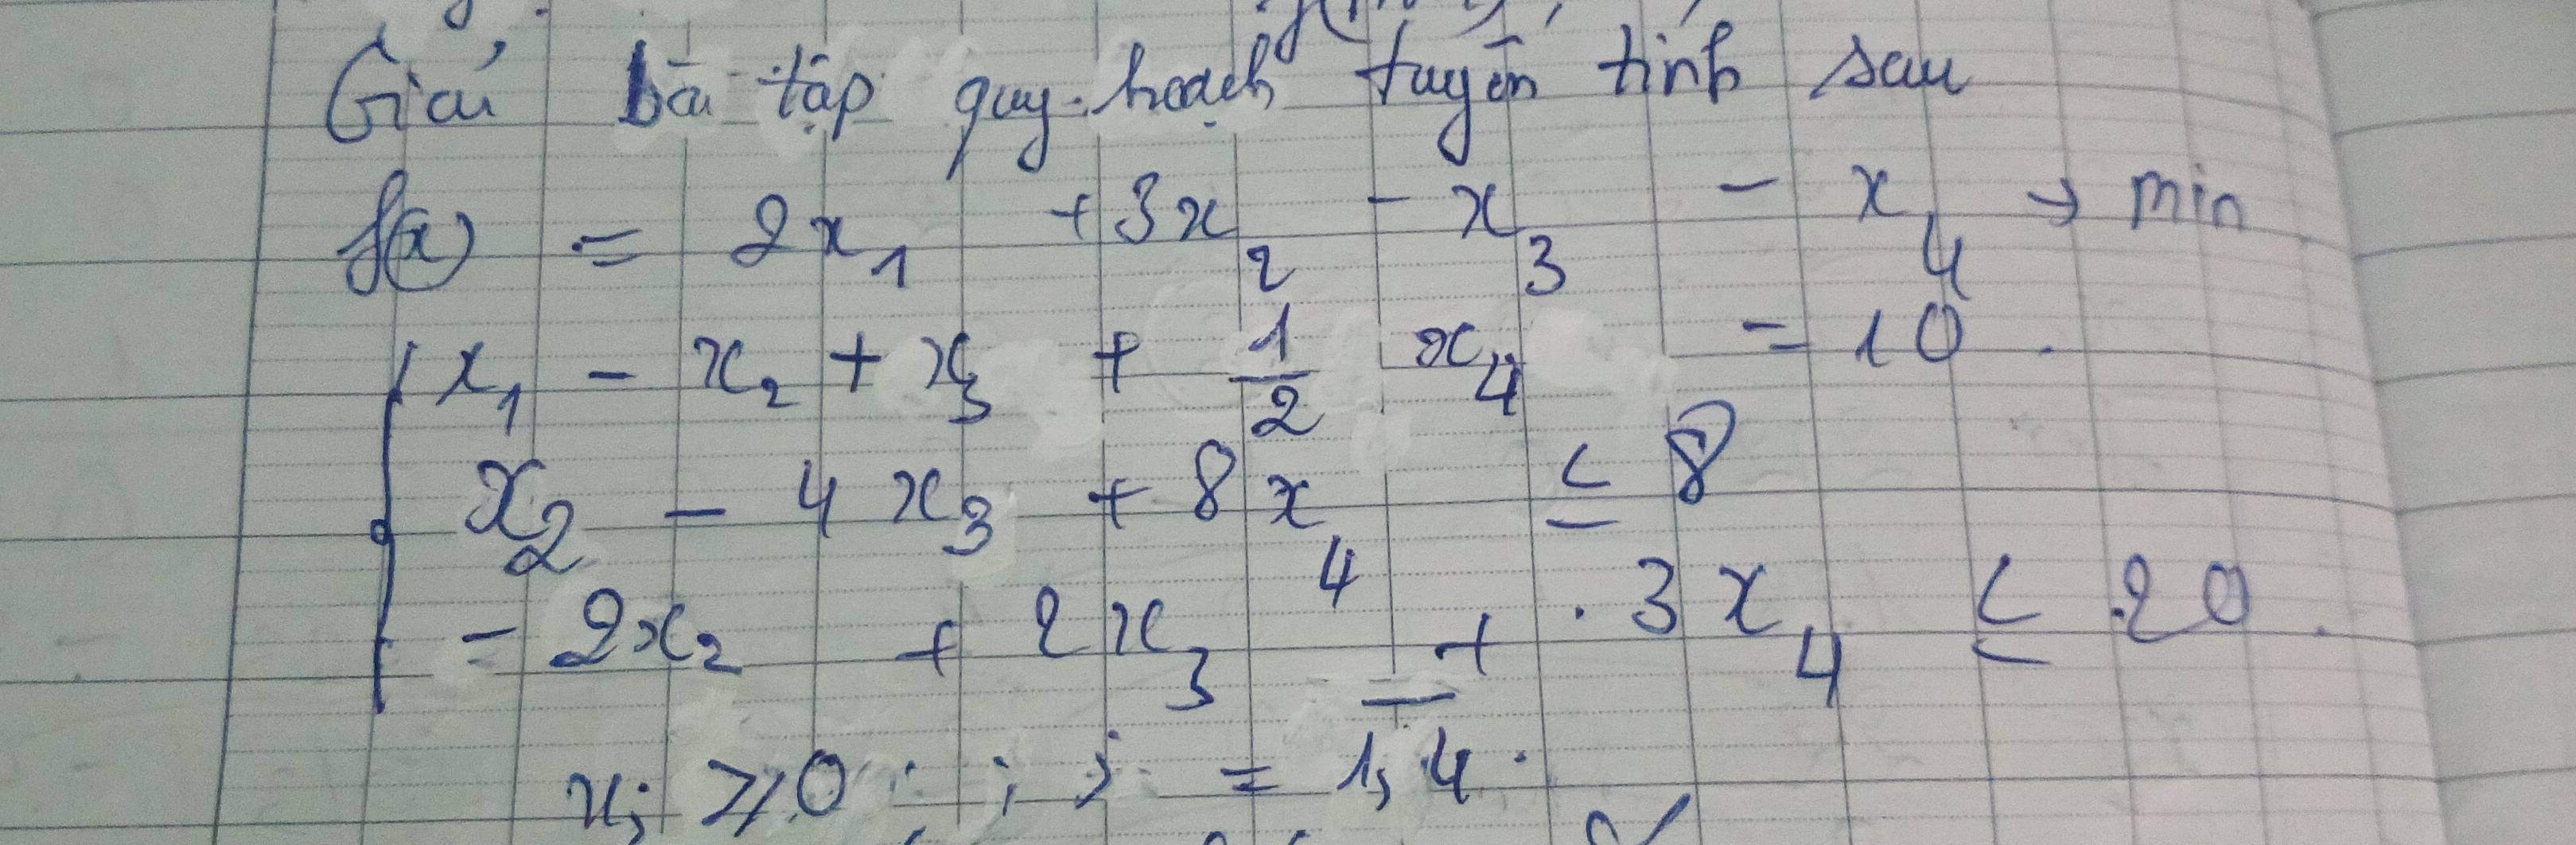 Giải bài tập quy hoạch tuyến tính sau
f(x) = 2x₁ + 3x₂ - x₃ - x₄ → min
x₁ - x₂ + x₃ + 1/2 x₄ = 10.
x₂ - 4x₃ + 8x₄ ≤ 8
- 2x₂ + 2x₃ + 3x₄ ≤ 20
xⱼ ≥ 0 ; j = 1,4.